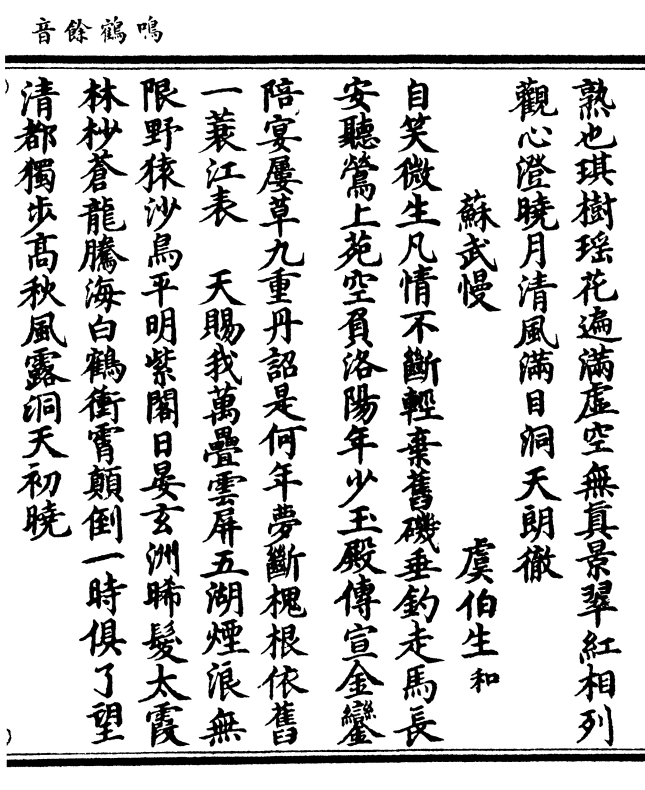 鳴鶴餘音
熟也琪樹瑶花遍滿虚空無真景翠紅相列
觀心澄曉月清風滿目洞天朗徹
蘇武慢 虞伯生和
自笑微生凡情不斷輕棄舊磯垂釣走馬長
安聽鶯上苑空負洛陽年少玉殿傳宣金鑾
陪宴屢草九重丹詔是何年夢斷槐根依舊
一蓑江表 天賜我萬疊雲屏五湖煙浪無
限野猿沙鳥平明紫閣日晏玄洲晞髮太霞
林杪蒼龍騰海白鶴衝霄顛倒一時俱了望
清都獨步高秋風露洞天初曉